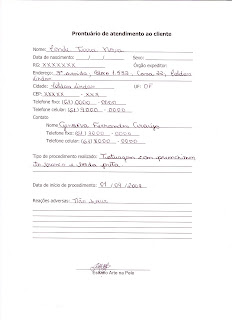 Prontuário de atendimento ao cliente
Nome: Terra Nova
Data de nascimento: / / Sexo:
RG: XXXXXXX Órgão expeditor:
Endereço: 3ª avenida, Casa 22,
Cidade: UF: DF
CEP: XXXXX - XXX
Telefone fixo: (61) 0000 - 0000
Telefone celular: (61) 9000 - 0000
Contato
Nome: Fernandes Araujo
Telefone fixo: (61) 3000 - 0000
Telefone celular: (61) 8000 - 0000
Tipo de procedimento realizado: Tatuagem com
Data de início do procedimento: 01 / 09 / 2008
Reações adversas: Não houve
Trabalho Arte na Pele